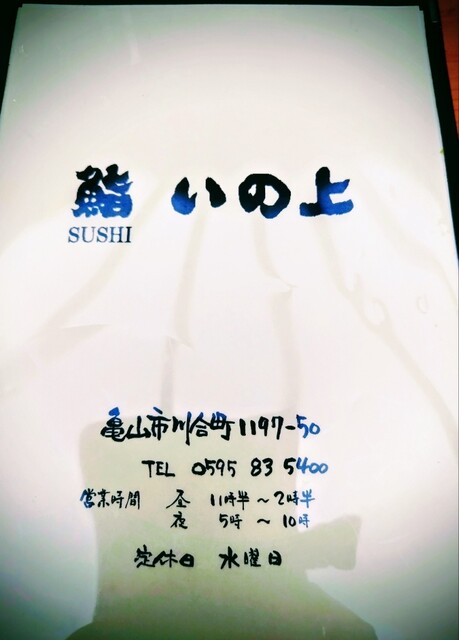 鮨 いの上
SUSHI
亀山市川合町1197-50
TEL 0595 83 5400
営業時間 昼 11時半～2時半
夜 5時～10時
定休日 水曜日